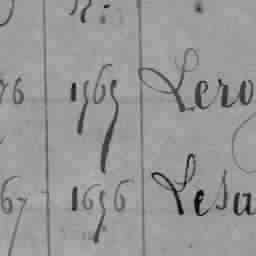 76 1565 Lero
67 1656 Lesa